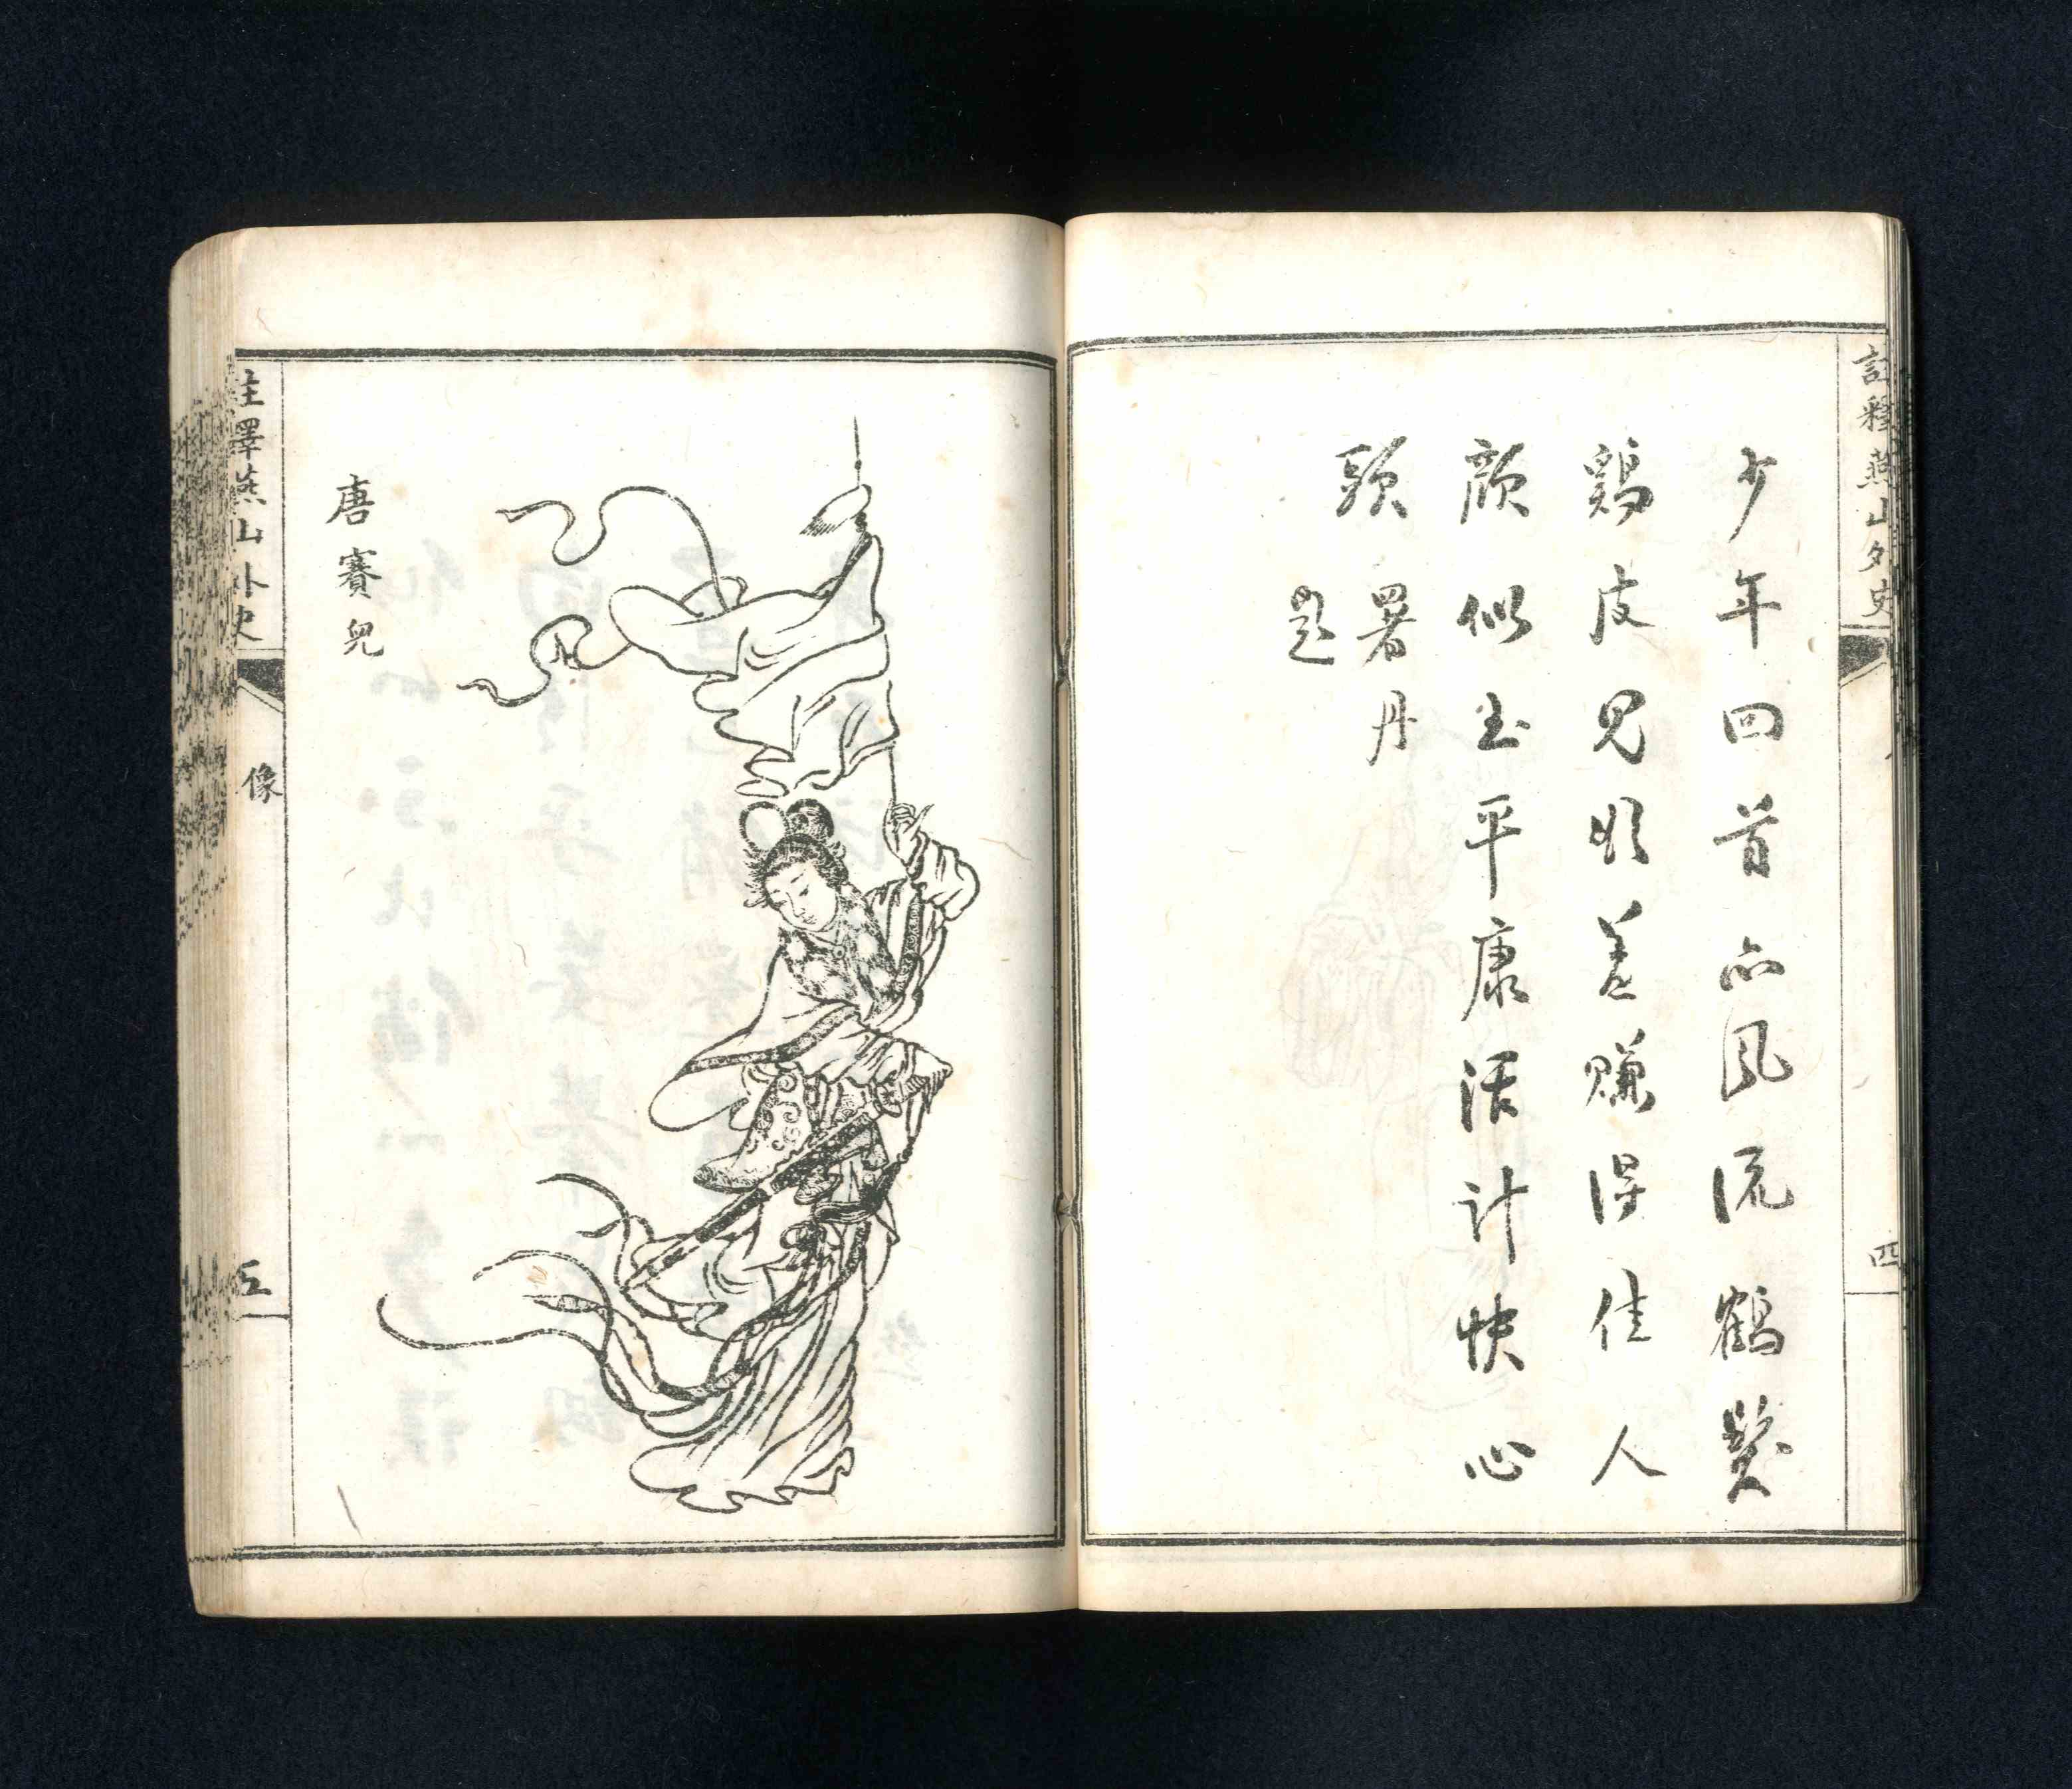 註釋燕山外史
四
少年回首亦風流鶴髮
鷄皮兒將差賺得佳人
顏似玉平康活計快心
頭 署丹
題
唐賽兒
註釋燕山外史
像
五